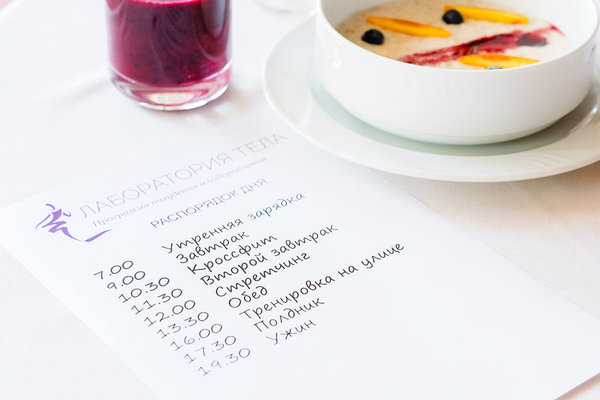 ЛАБОРАТОРИЯ ТЕЛА
Программа похудения и оздоровления
РАСПОРЯДОК ДНЯ
7.00 Утренняя зарядка
9.00 Завтрак
10.30 Кроссфит
11.30 Второй завтрак
12.00 Стретчинг
13.30 Обед
16.00 Тренировка на улице
17.30 Полдник
19.30 Ужин